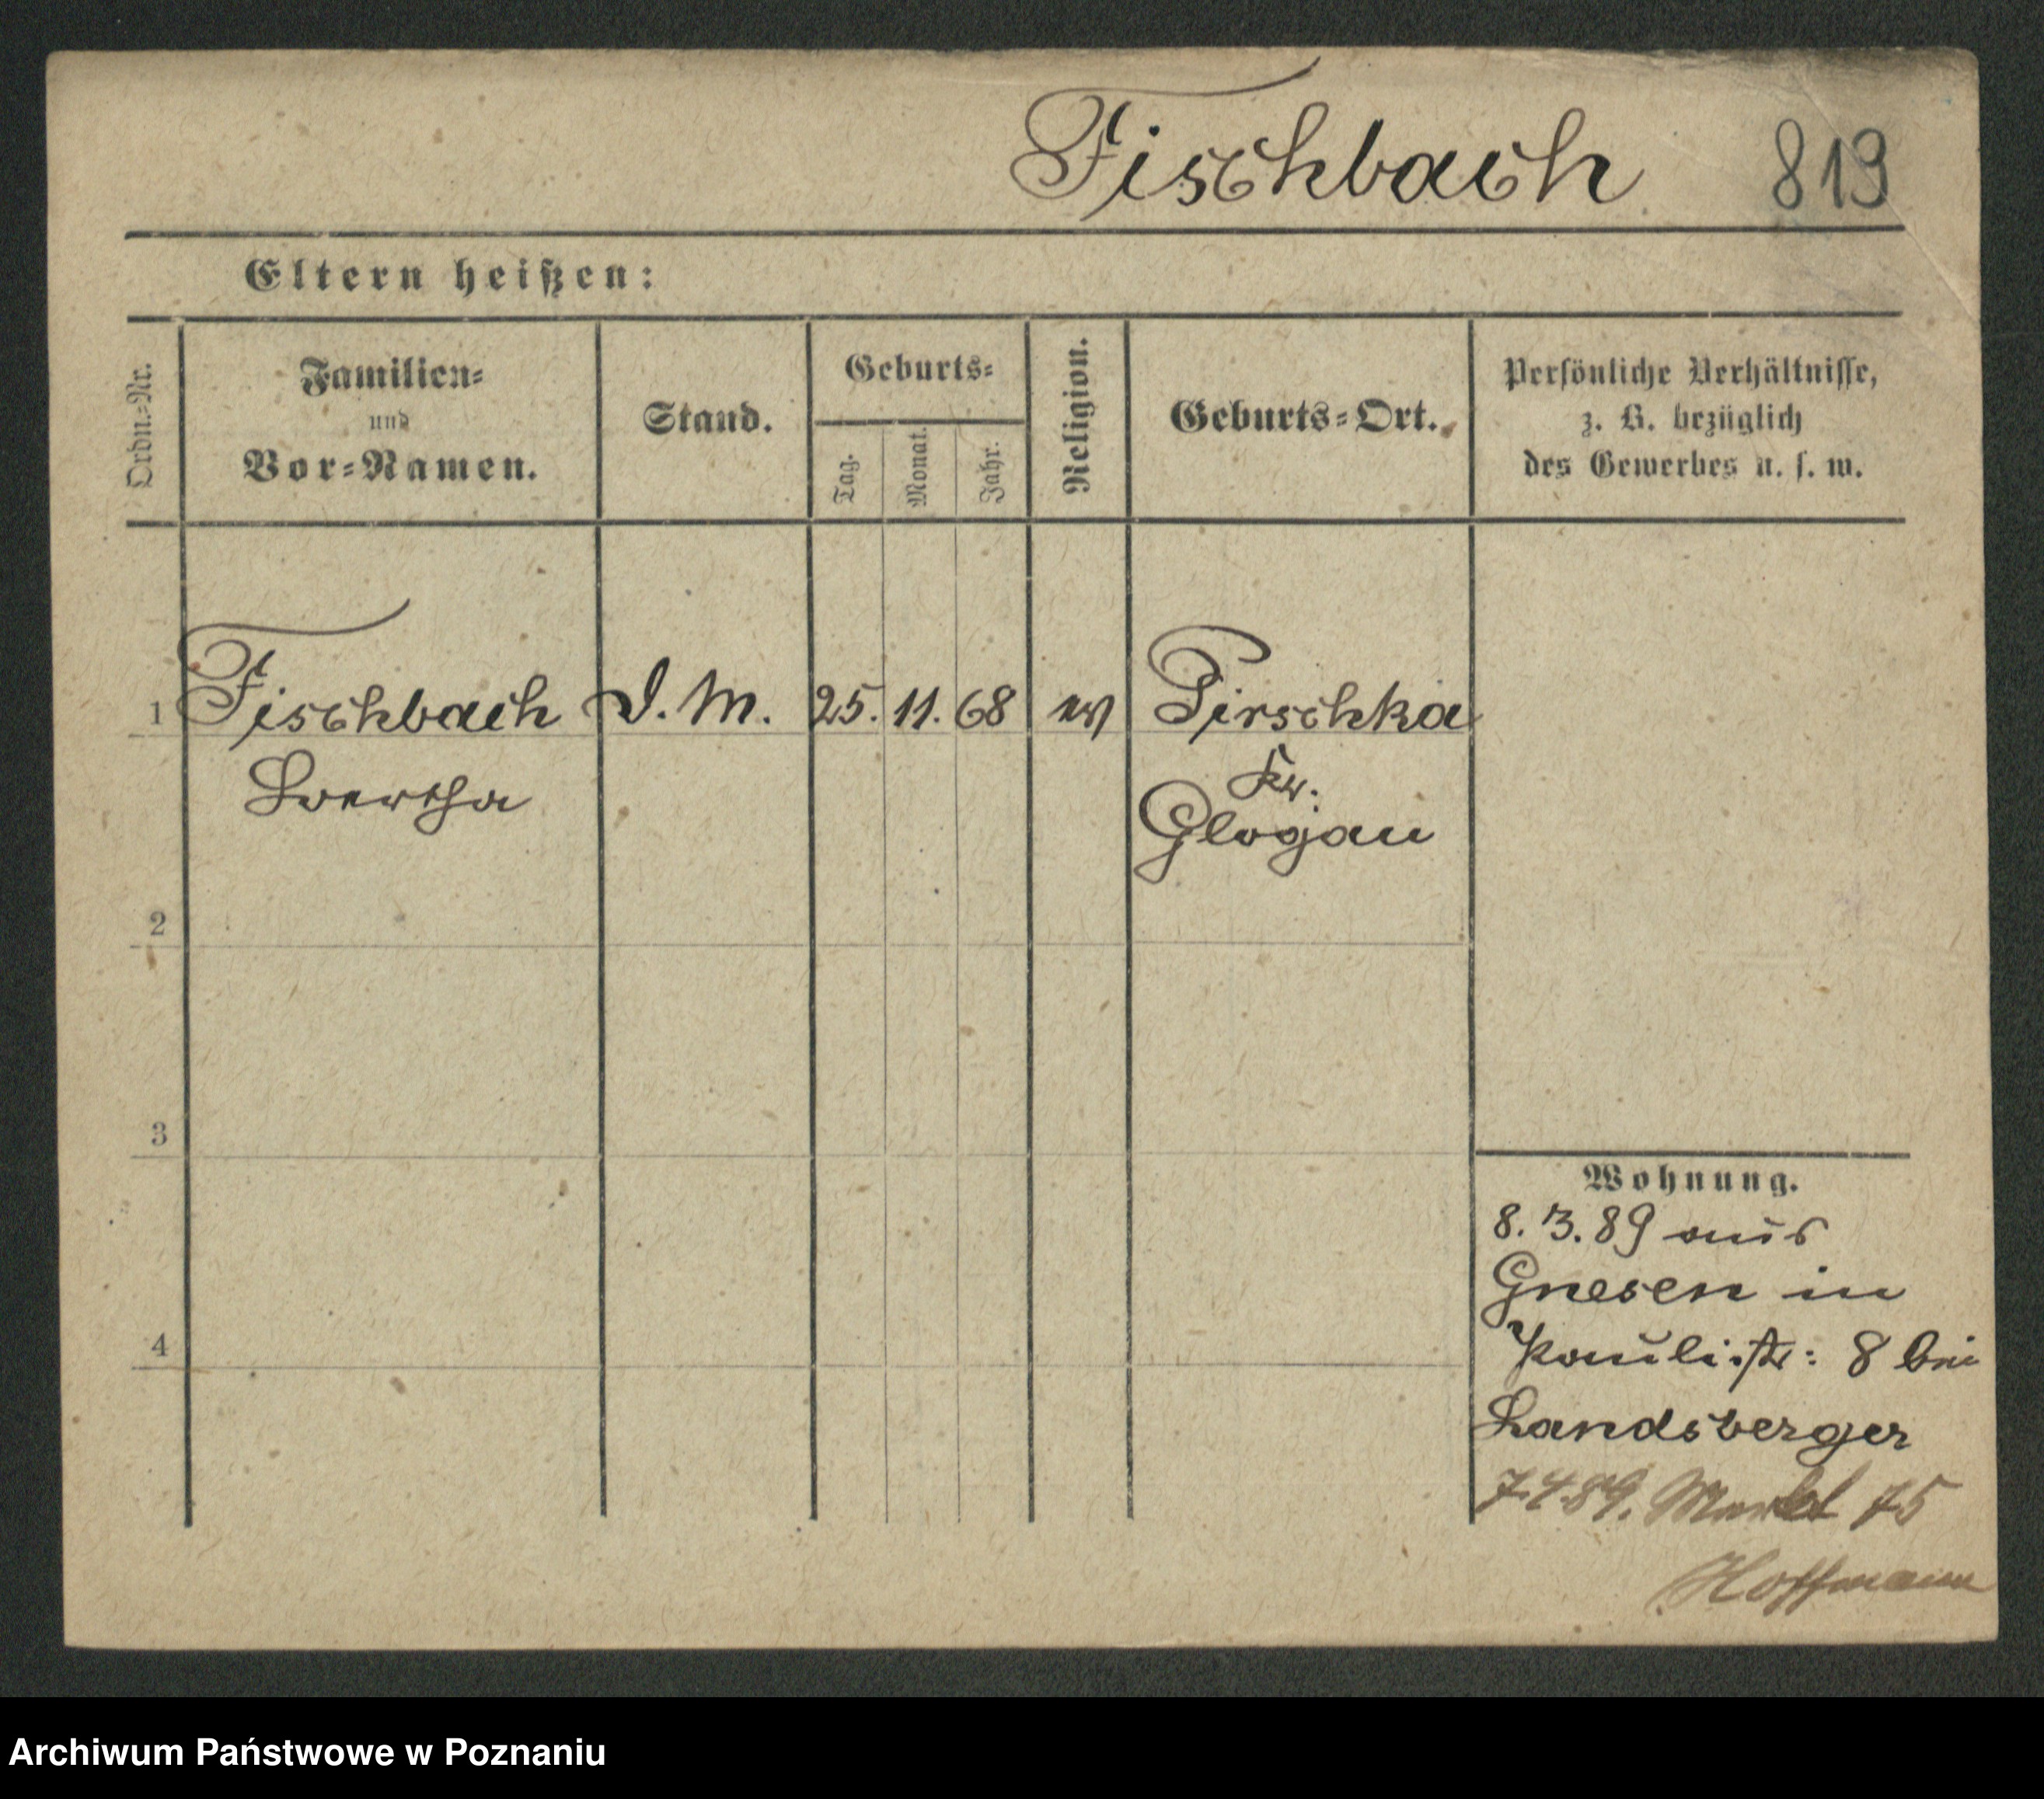 Fischbach 819
Eltern heißen:
Ordn.-Nr.
Familien-
und
Vor-Namen.
Stand.
Geburts-
Tag.
Monat.
Jahr.
Religion.
Geburts-Ort.
Persönliche Verhältnisse,
z. B. bezüglich
des Gewerbes u. s. w.
1 Fischbach D. M. 25. 11. 68 ev Pirschka
Bertha
Kr.
Glogau
2
3
4
Wohnung.
8. 3. 89 aus
Gnesen in
Paulistr: 8 bei
Landsberger
7.4.89. Markt 75
Hoffmann
Archiwum Państwowe w Poznaniu